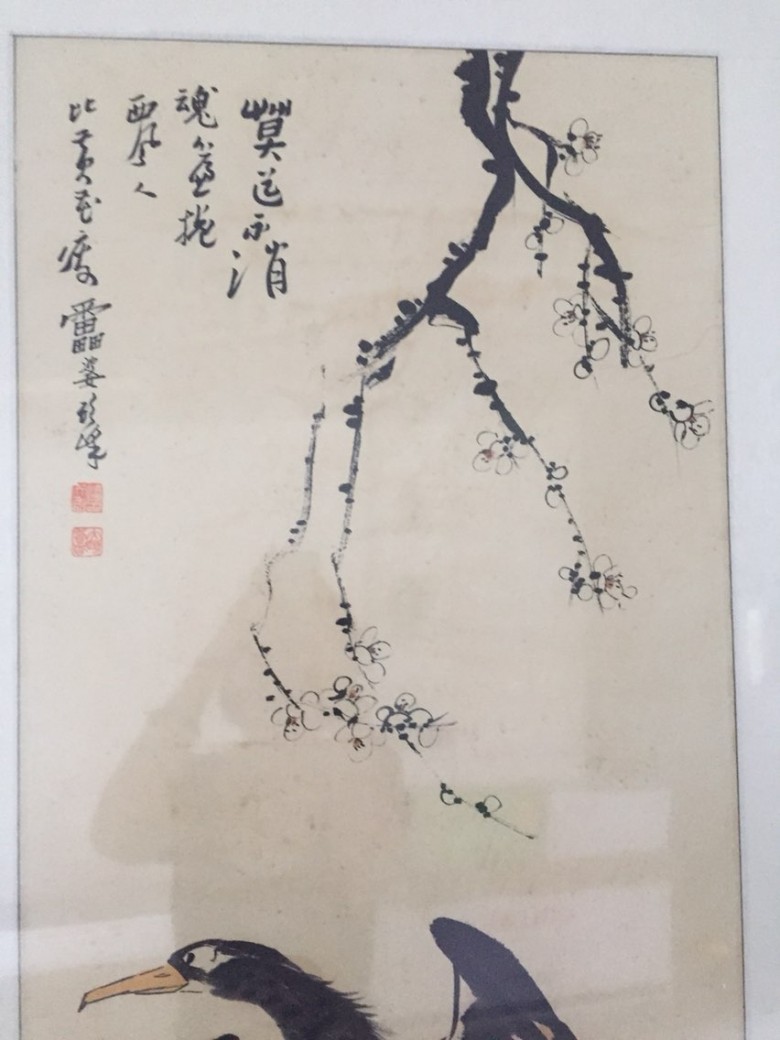 莫道不消
魂簾捲
西風人
比黃花瘦